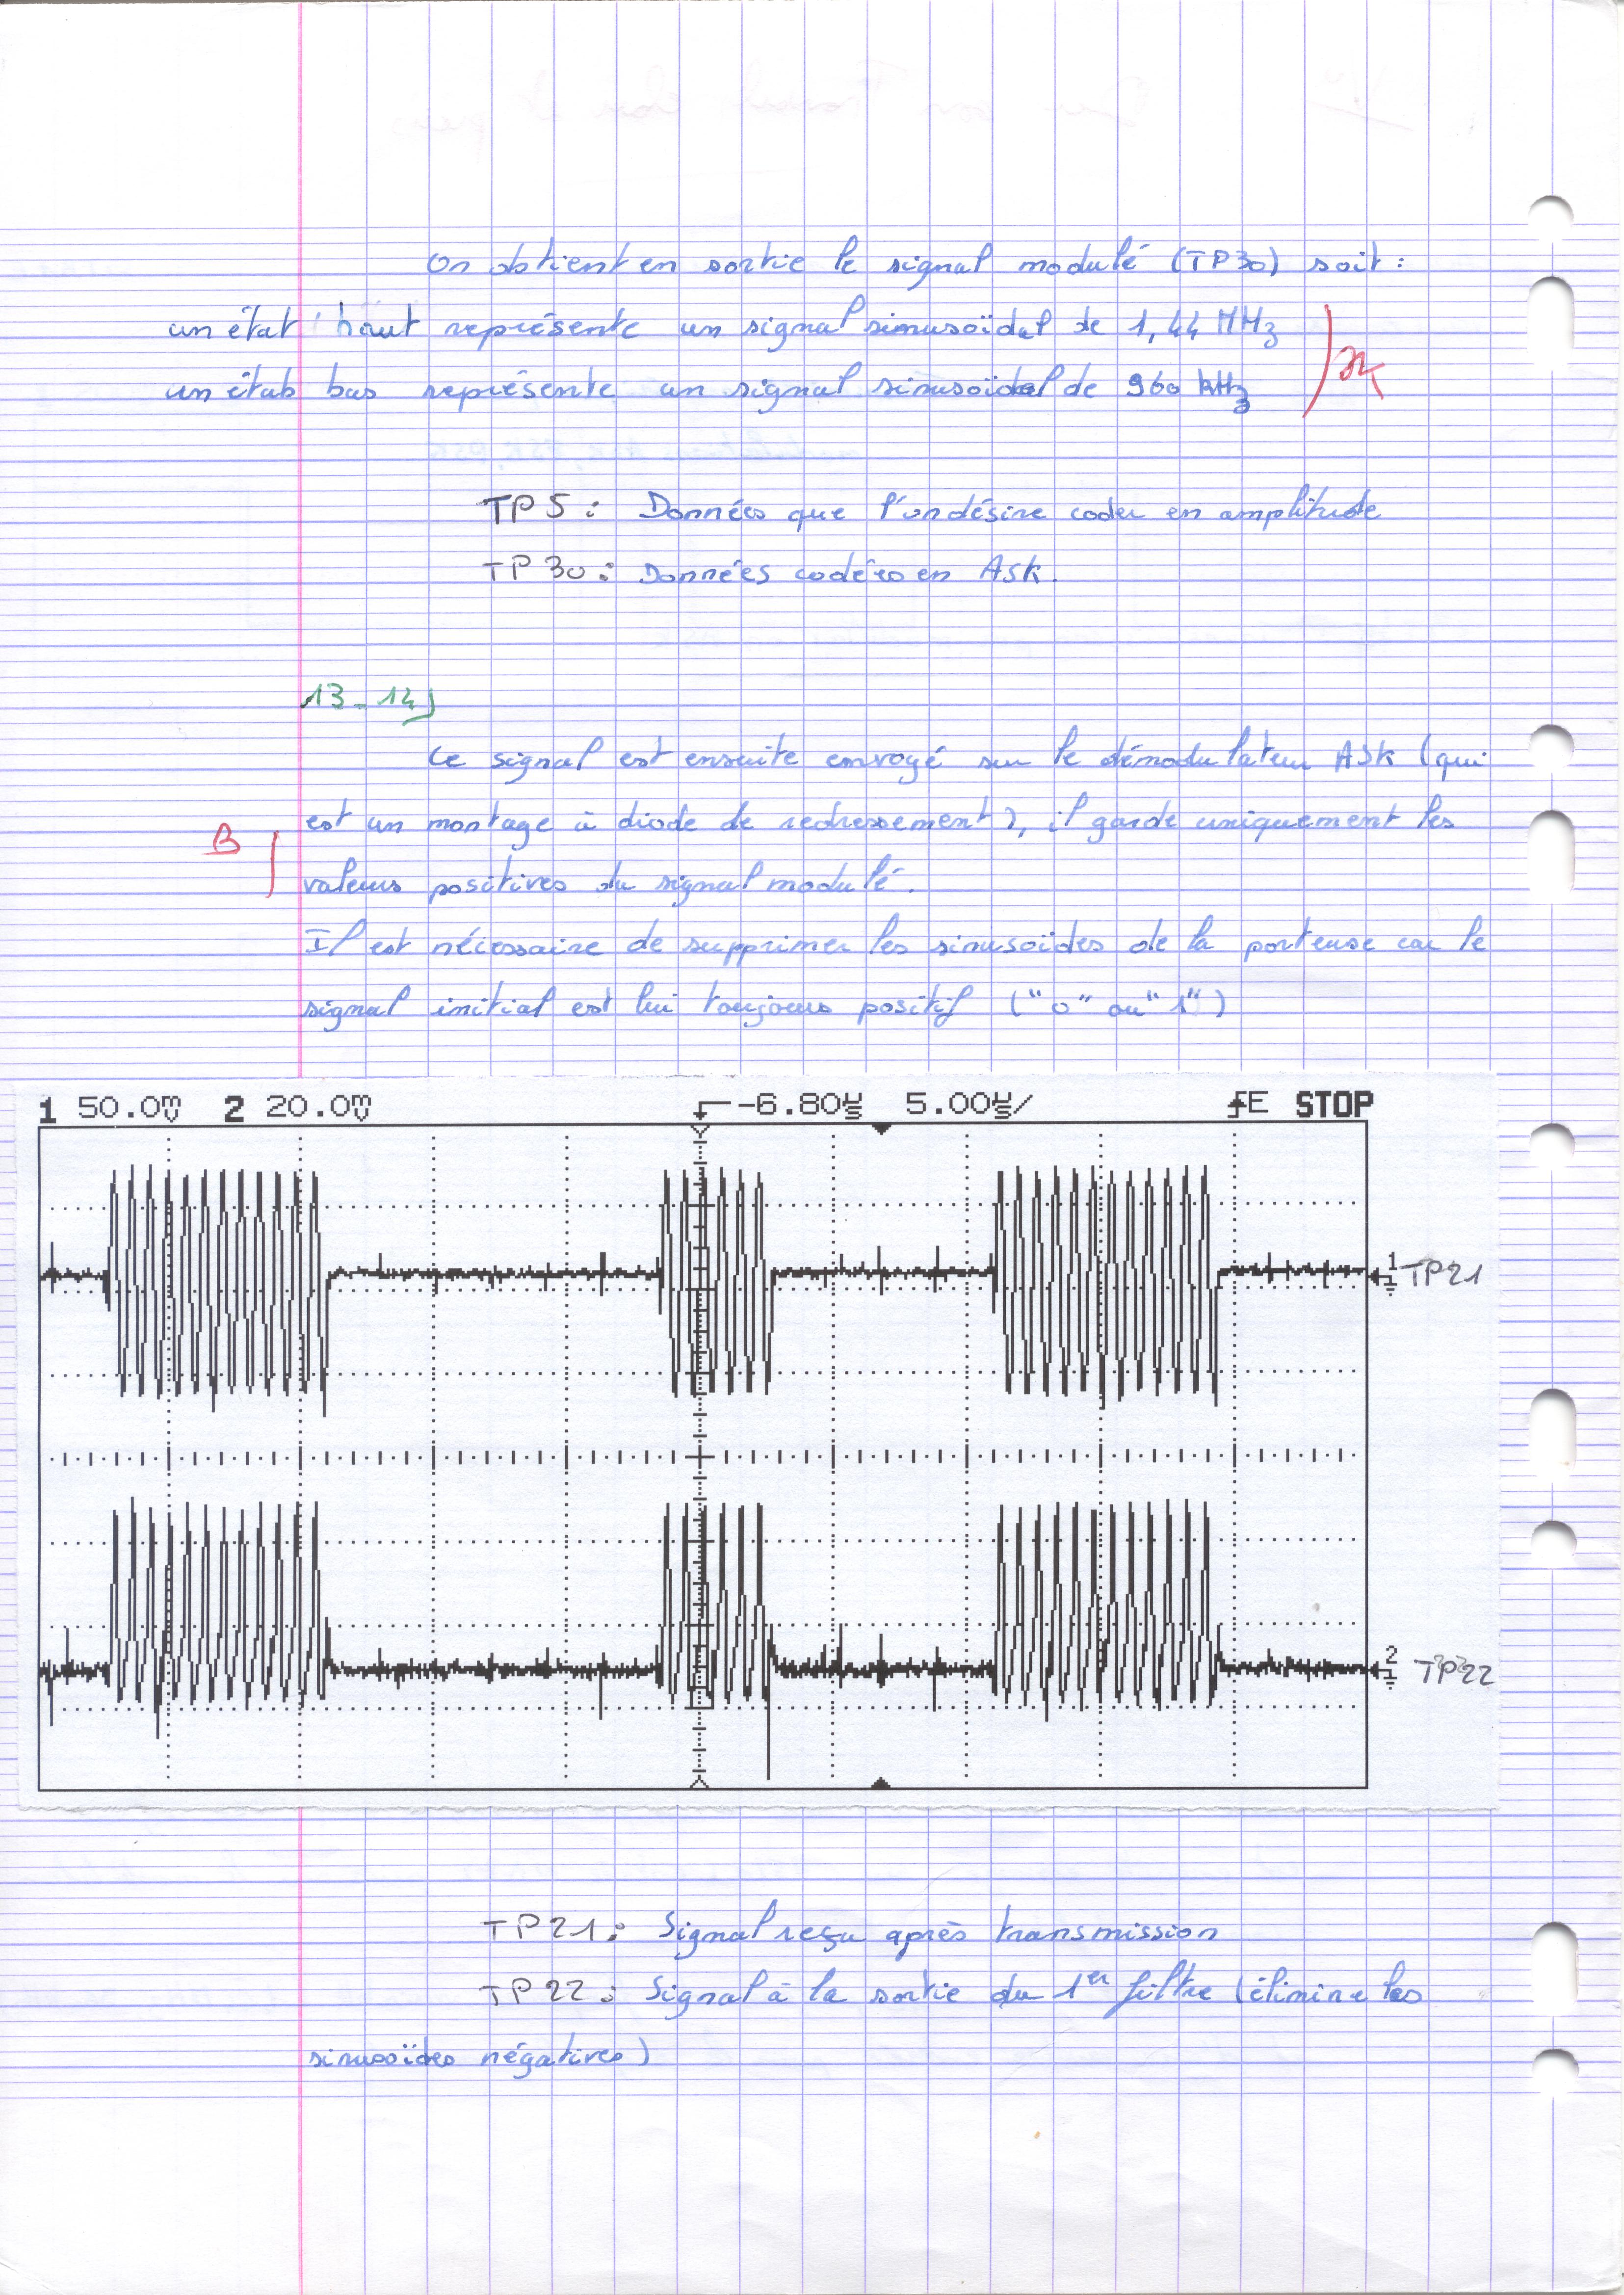 On obtient en sortie le signal modulé (TP30) soit :
un état haut représente un signal sinusoïdal de 1,44 MHz
un état bas représente un signal sinusoïdal de 960 kHz
TP5 : Données que l'on désire coder en amplitude
TP30 : Données codées en ASK.
13-14)
Ce signal est ensuite envoyé sur le démodulateur ASK (qui
est un montage à diode de redressement), il garde uniquement les
B
valeurs positives du signal modulé.
Il est nécessaire de supprimer les sinusoïdes de la porteuse car le
signal initial est lui toujours positif ("0" ou "1")
1 50.0mV 2 20.0mV -6.80µs 5.00µs/ E STOP
1 TP21
2 TP22
TP21 : Signal reçu après transmission
TP22 : Signal à la sortie du 1er filtre (élimine les
sinusoïdes négatives)